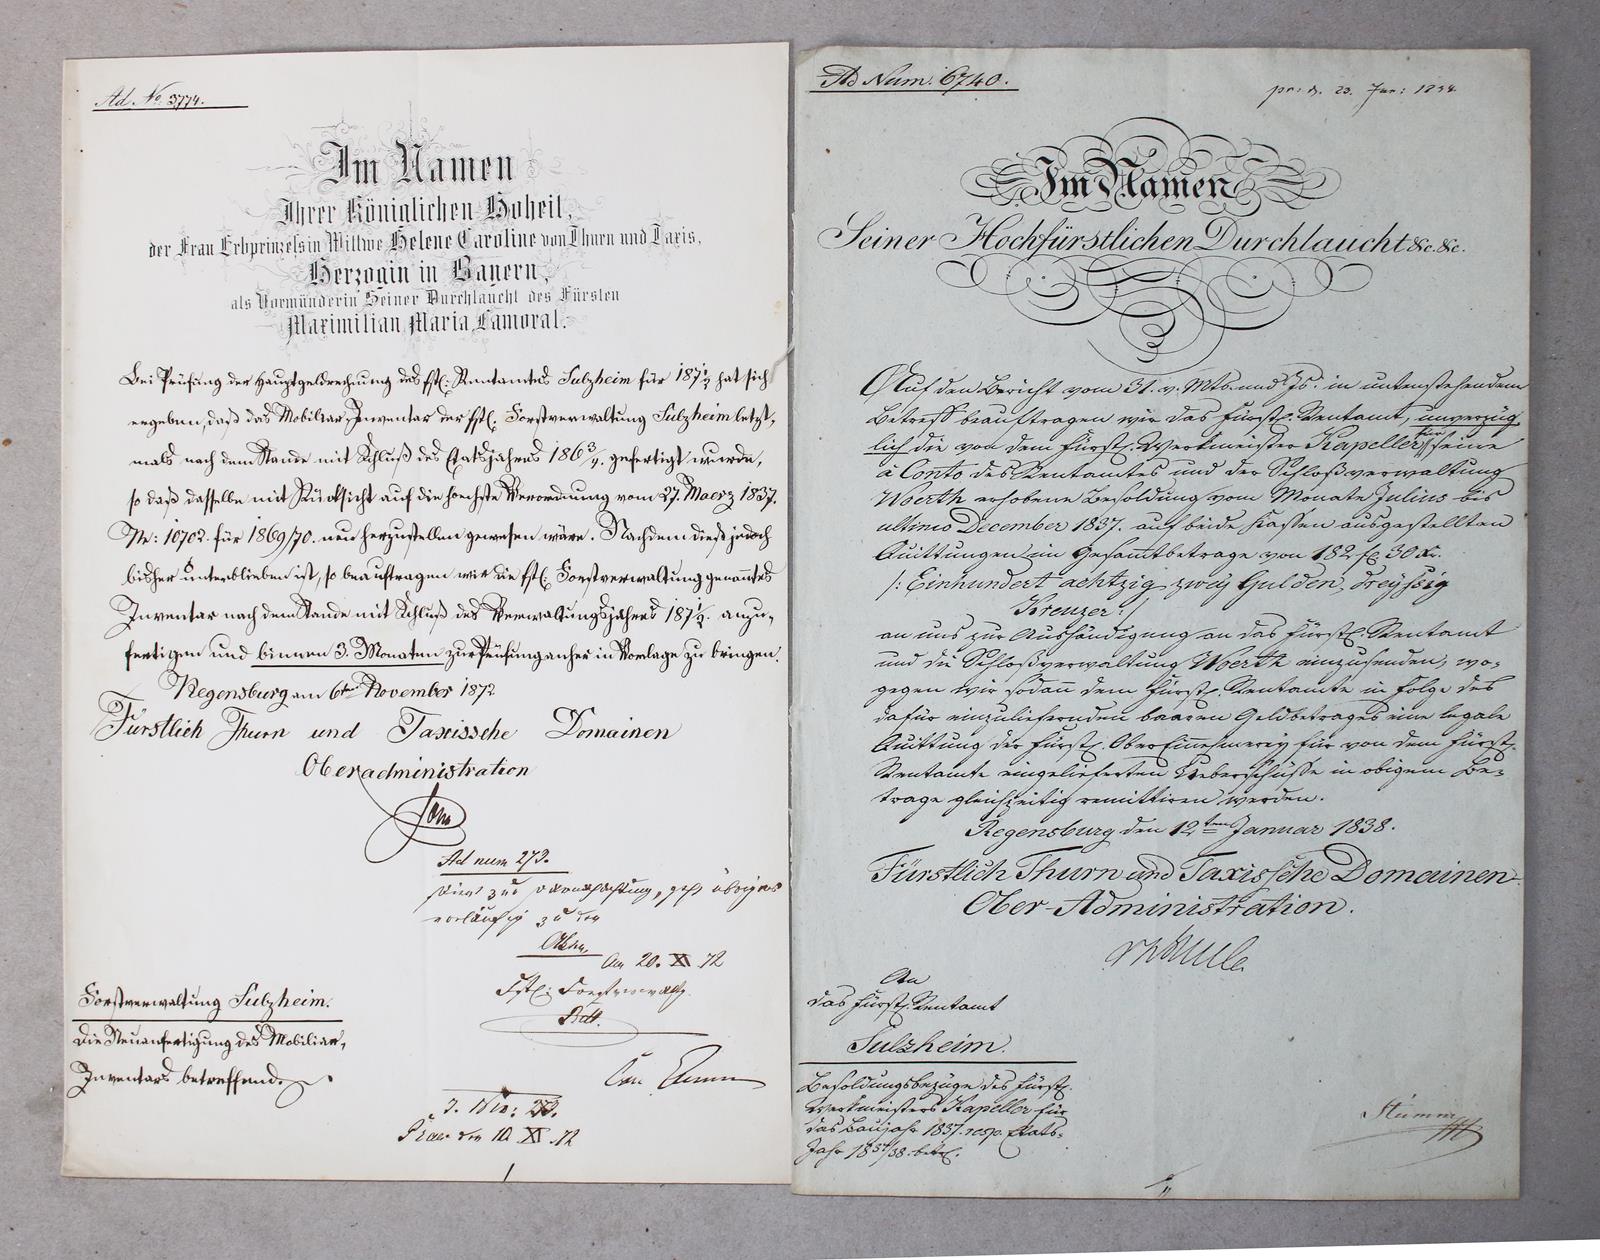 Ad No. 3774.
Im Namen
Ihrer Königlichen Hoheit,
der Frau Erbprinzessin Wittwe Helene Caroline von Thurn und Taxis,
Herzogin in Bayern,
als Vormünderin Seiner Durchlaucht des Fürsten
Maximilian Maria Lamoral.
Bei Prüfung der Hauptgeldrechnung des fstl. Rentamtes Sulzheim für 1871/2 hat sich
ergeben, daß das Mobiliar-Inventar der fstl. Forstverwaltung Sulzheim letzt-
mals nach dem Stande mit Schluß des Etatsjahres 1863/4. gefertigt wurde,
so daß dasselbe mit Rücksicht auf die hoechste Verordnung vom 27. Maerz 1837.
Nr: 10702. für 1869/70. neu herzustellen gewesen wäre. Nachdem dieß jedoch
bisher unterblieben ist, so beauftragen wir die fstl. Forstverwaltung genanntes
Inventar nach dem Stande mit Schluß des Verwaltungsjahres 1871/2. anzu-
fertigen und binnen 3. Monaten zur Prüfung anher in Vorlage zu bringen.
Regensburg am 6ten November 1872
Fürstlich Thurn und Taxissche Domainen
Oberadministration
Ad num 273.
zur übrigens
vorläufig zu den
Akten
Am 20. XI. 72
Fstl: Forstverwaltg.
Forstverwaltung Sulzheim.
Die Neuanfertigung des Mobiliar-
Inventars betreffend.
J. Nro: 273.
Präs. den 10. XI. 72
Ad Num. 6740.
pr: d. 23. Jan:
Im Namen
Seiner Hochfürstlichen Durchlaucht &c. &c.
Auf den Bericht vom 31. v. Mts. und Js: in untenstehendem
Betreff beauftragen wir das Fürstl. Rentamt, unverzüg
lich die von dem Fürstl. Werkmeister Kapeller für seine
à Conto des Rentamtes und der Schloßverwaltung
Woerth erhobene Besoldung vom Monate Julius bis
ultimo December 1837. auf beide Kassen ausgestellten
Quittungen im Gesammtbetrage von 182 f. 30 Xr.
/: Einhundert achtzig zwey Gulden, dreyssig
Kreuzer :/
an uns zur Aushändigung an das Fürstl. Rentamt
und die Schloßverwaltung Woerth einzusenden, wo-
gegen wir sodann dem Fürstl. Rentamte in Folge des
dafür einzuliefernden baaren Geldbetrages eine legale
Quittung der Fürstl. Ober Einnehmerey für von dem Fürstl.
Rentamte eingelieferten Ueberschüsse in obigem Be-
trage gleichzeitig remittiren werden.
Regensburg den 12ten Januar 1838.
Fürstlich Thurn und Taxis'sche Domainen
Ober-Administration.
An
das Fürstl. Rentamt
Sulzheim.
Besoldungsbezüge des Fürstl.
Werkmeisters Kapeller für
das Baujahr 1837. resp. Etats-
Jahr 1837/38. betr.
Stumm